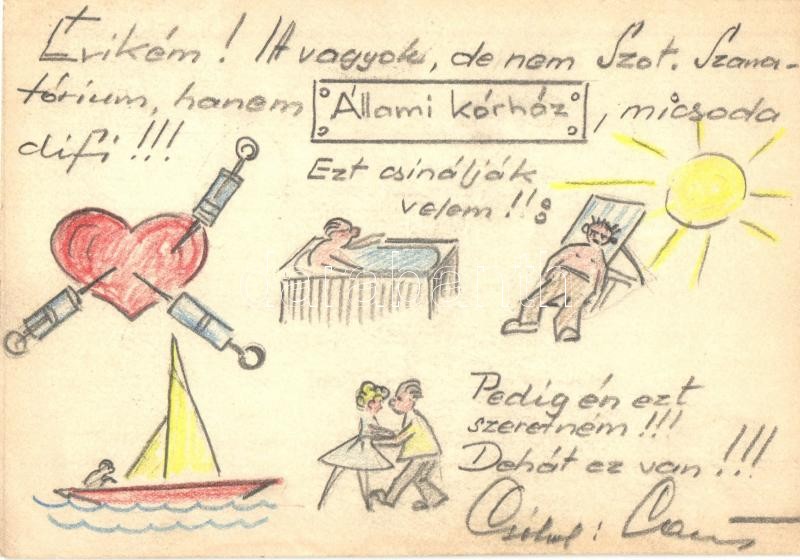 Évikém! Itt vagyok, de nem Szot. Szana-
tórium, hanem Állami kórház, micsoda
difi!!!
Ezt csinálják
velem!!:
Pedig én ezt
szeretném!!!
Dehát ez van!!!
Csókol: